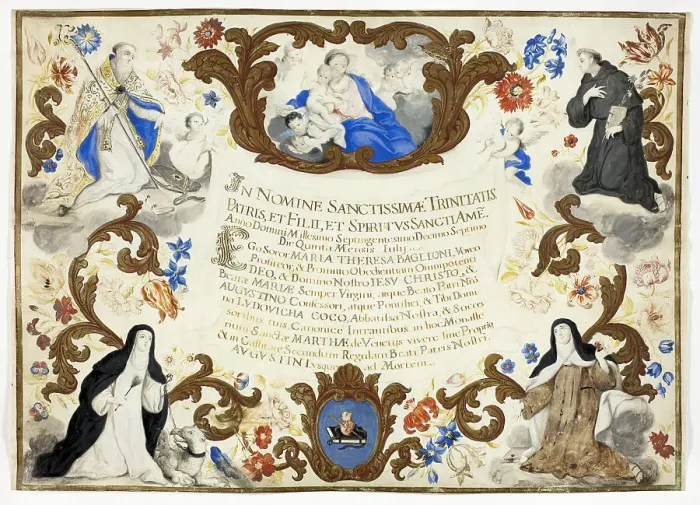 IN NOMINE SANCTISSIMÆ TRINITATIS.
PATRIS, ET FILII, ET SPIRITVS SANCTI AMẼ.
Anno Domini Millesimo Septingentesimo Decimo Septimo
Die Quinta Mensis Iulij
EGo Soror MARIA THERESA BAGLIONI, Voveo
Profiteor, & Promitto Obedientiam Omnipotenti
DEO, & Domino Nostro IESV CHRISTO, &
Beatæ MARIÆ Semper Virgini, atque Beato Patri Nrõ
AUGUSTINO Confessori, atque Pontifici, & Tibi Domi
na LVDOVICHA COCO, Abbatissa Nostra, & Succe
soribus tuis Canonice Intrantibus in hoc Monaste
rium Sanctæ MARTHÆ de Venetijs vivere sine Proprio
& in Castitate Secundum Regulam Beati Patris Nostri
AVGVSTINI Vsque ad Mortem